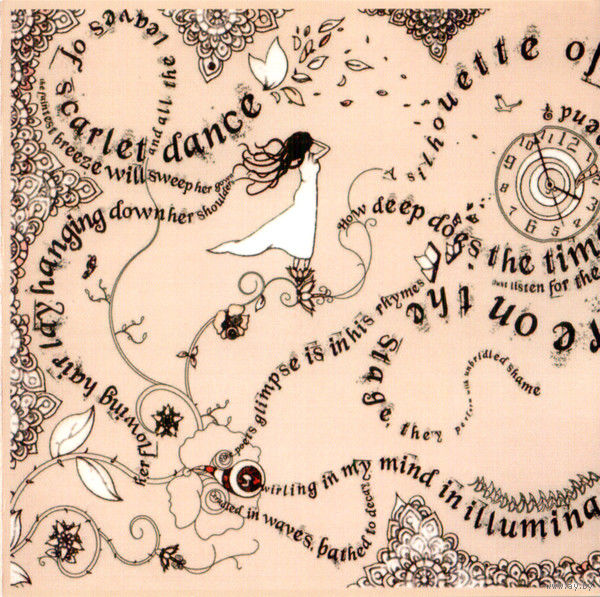 her flowing hair lay hanging down her shoulders
the faintest breeze will sweep her
and all the leaves
to scarlet dance
A silhouette of
end?
12
How deep does the time
Just listen for the
re on the
Stage, they
perform with unbridled shame
poets glimpse is in his rhymes
swirling in my mind in illumina
in waves, bathed to decan
www.ay.by